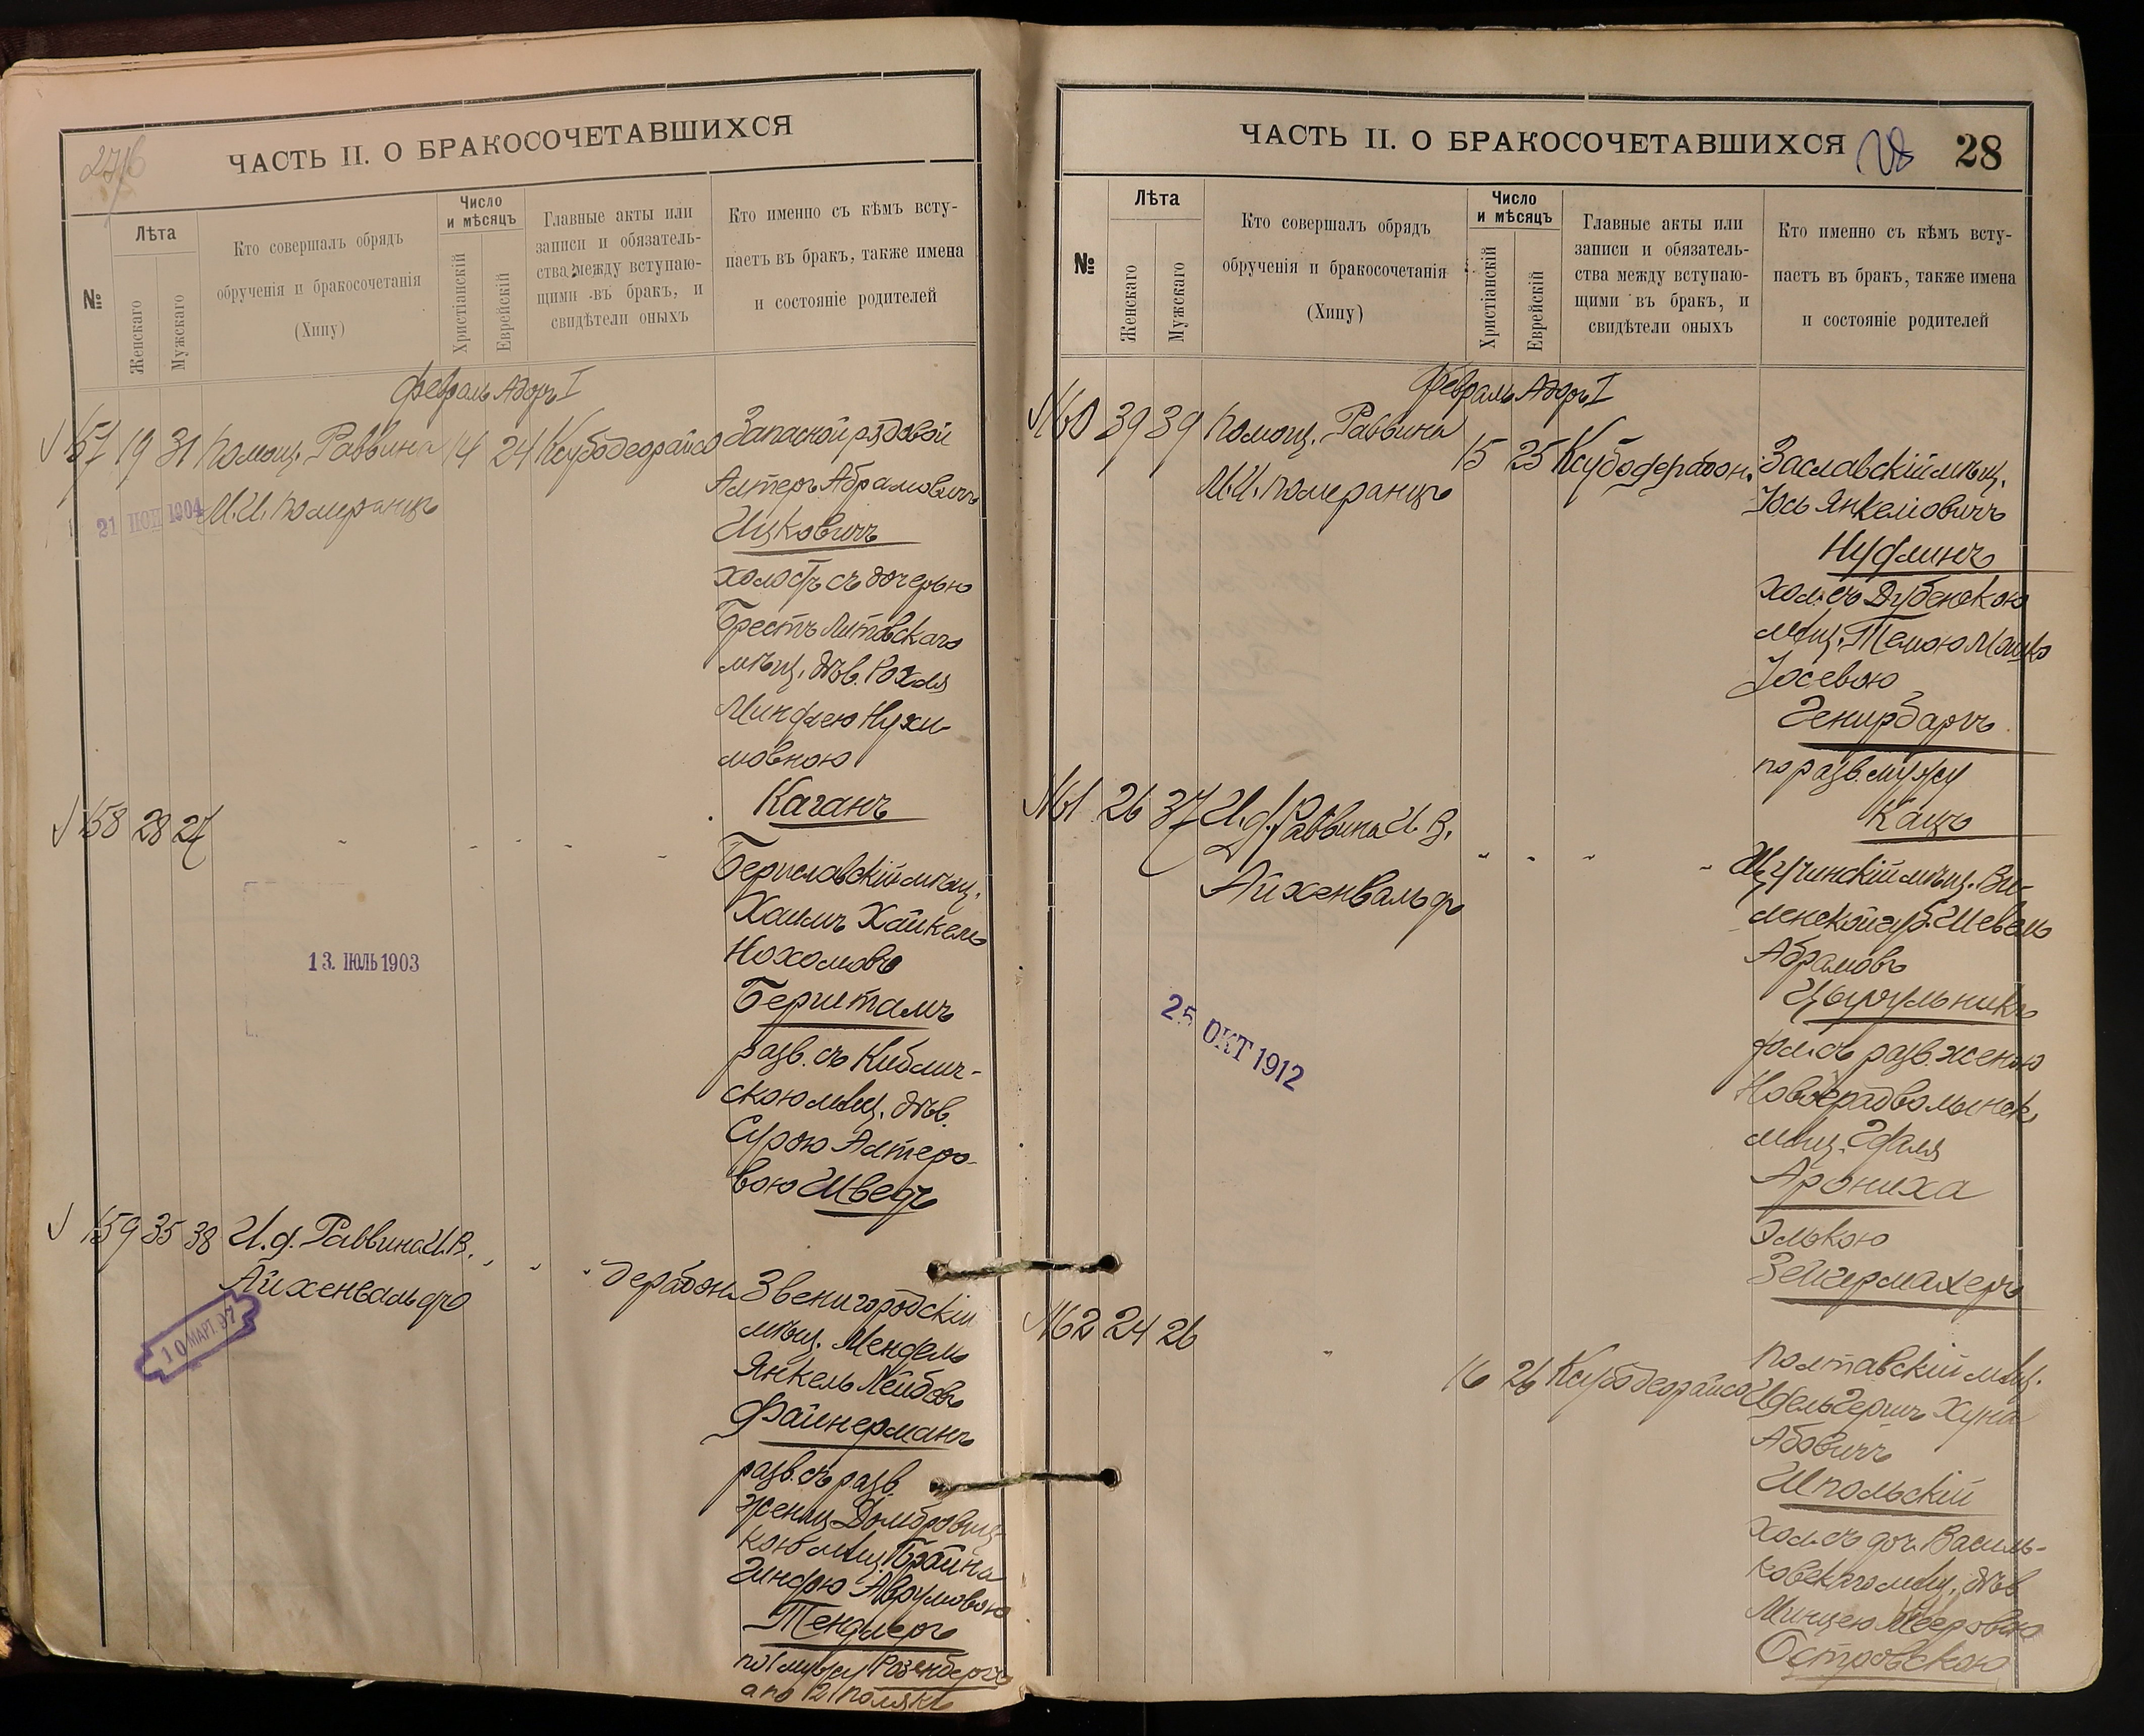 ЧАСТЬ II. О БРАКОСОЧЕТАВШИХСЯ
№
Лѣта
Женскаго
Мужскаго
Кто совершалъ обрядъ
обрученія и бракосочетанія
(Хипу)
Число
и мѣсяцъ
Христіанскій
Еврейскій
Главные акты или
записи и обязатель-
ства между вступаю-
щими въ бракъ, и
свидѣтели оныхъ
Кто именно съ кѣмъ всту-
паетъ въ бракъ, также имена
и состояніе родителей
Февраль Адоръ I
157 19 31 Помощ. Раввина 14 24 Ксубодеорайсо Запасной рядовой
21 НОЯ 1904 М.И. Померанцъ
Алтеръ Абрамовичъ
Ицковичъ
холостъ съ дочерью
Брестъ Литовскаго
мѣщ. дѣв. Рохля
Миндлею Нухи-
мовною
Каганъ
158 28 27 " " " " "
Бериславскій мѣщ.
Хаимъ Хайкель
Нохомовъ
13. ІЮЛЬ 1903
Бернштамъ
разв. съ Кублич-
скою мѣщ. дѣв.
Сурою Алтеро-
вою Шведъ
159 35 38 И.д. Раввина И.В. " " " дерабонн
Айхенвальдъ
10 МАРТ. 97
Звенигородскій
мѣщ. Мендель
Янкель Лейбовъ
Файнерманъ
разв. съ разв.
женщ. Домбровиц-
кою мѣщ. Брайна
Гиндою Аврумовою
Тендлеръ
по 1 мужу Розенбергъ
а по 2 Полякъ
ЧАСТЬ II. О БРАКОСОЧЕТАВШИХСЯ 28 28
№
Лѣта
Женскаго
Мужскаго
Кто совершалъ обрядъ
обрученія и бракосочетанія
(Хипу)
Число
и мѣсяцъ
Христіанскій
Еврейскій
Главные акты или
записи и обязатель-
ства между вступаю-
щими въ бракъ, и
свидѣтели оныхъ
Кто именно съ кѣмъ всту-
паетъ въ бракъ, также имена
и состояніе родителей
Февраль Адоръ I
160 39 39 Помощ. Раввина 15 25 Ксубодерабон.
М.И. Померанцъ
Заславскій мѣщ.
Іось Янкеліовичъ
Нудлинъ
хол. съ Дубенскою
мѣщ.
Іосевою
по разв. мужу
Кацъ
161 26 37 И.д. Раввина И.В. " " " "
Айхенвальдъ
Щучинскій мѣщ. Ви-
ленской губ. Шевель
Абрамовъ
Цырульникъ
25 ОКТ 1912
хол. съ разв. женою
Новоградволынск.
мѣщ.
Арониха
Элькою
Зейгермахеръ
162 24 26 " 16 26 Ксубодеорайсо
Полтавскій мѣщ.
Идель Гершъ Хуна
Абовичъ
Шпольскій
хол. съ доч. Василь-
ковскаго мѣщ. дѣв.
Минцею Мееровою
Островскою